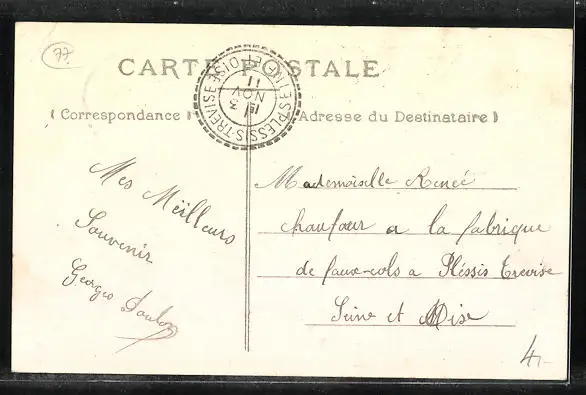 77
CARTE POSTALE
SEINE-ET-OISE
PLESSIS-TREVISE
3
NOV
11
( Correspondance )
Adresse du Destinataire )
Mes Meilleurs
Souvenir
Georges
Mademoiselle Renée
a la fabrique
de faux-cols a Pléssis Trevise
Seine et Oise
4,-